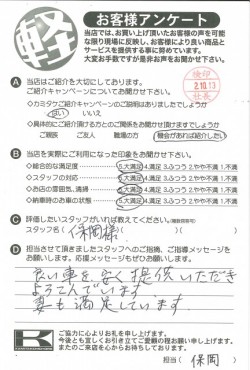 軽
お客様アンケート
当店では、お買い上げ頂いたお客様の声を可能
な限り現場に反映し、お客様により良い商品と
サービスを提供する事に努めています。
大変お手数ですが是非お声をお聞かせ下さい。
A 当店はご紹介を大切にしております。
ご紹介キャンペーンについてお聞かせ下さい。
◇カミタケご紹介キャンペーンのご説明はありましたでしょうか
はい いいえ
◇具体的にご紹介頂ける方とのご関係をお聞かせ頂けますでしょうか
ご親族 ご友人 職場の方 機会があれば紹介したい
2.10.13
B 当店を実際にご利用になった印象をお聞かせ下さい。
◇総合的な満足度 5.大満足 4.満足 3.ふつう 2.やや不満 1.不満
◇スタッフの対応 5.大満足 4.満足 3.ふつう 2.やや不満 1.不満
◇お店の雰囲気、清掃 5.大満足 4.満足 3.ふつう 2.やや不満 1.不満
◇納車時のお車の状態 5.大満足 4.満足 3.ふつう 2.やや不満 1.不満
C 評価したいスタッフがいれば教えてください。(複数回答可)
スタッフ名( 保岡様 )( )
D 担当させて頂きましたスタッフへのご指摘、ご指導メッセージを
お願いします。応援メッセージもぜひお願いします。
良い車を安く提供いただき
よろこんでいます
妻も満足しています。
K
ご協力に心よりお礼を申し上げます。
今後とも宜しくお引き立てご愛顧の程お願い申し上げます。
またのご来店を心からお待ちしております。
担当( 保岡 )